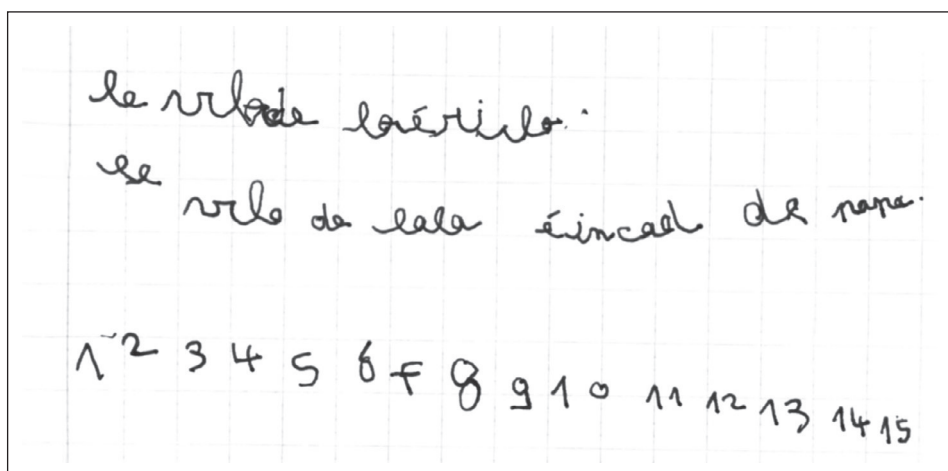 le vrlode lavérilo.
se
vrlo de lala éincad de papa.
1 2 3 4 5 6 7 8 9 10 11 12 13 14 15